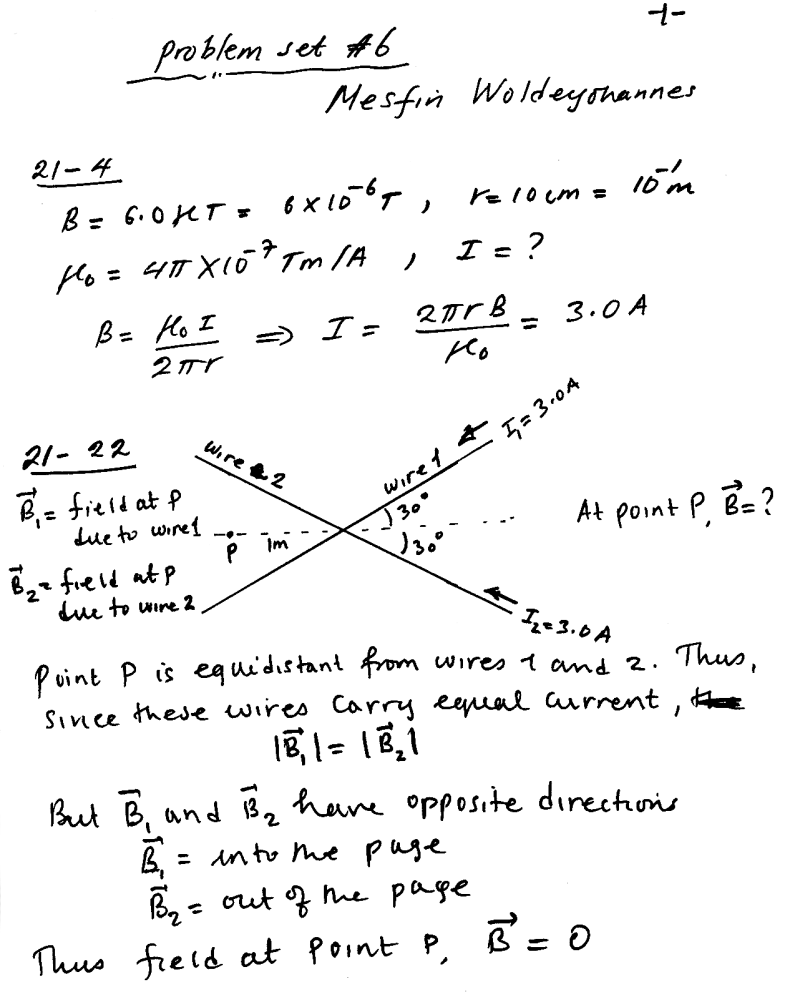 -1-
Problem set #6
Mesfin Woldeyohannes
21-4
B = 6.0 μT = 6×10⁻⁶ T , r = 10 cm = 10⁻¹ m
μ₀ = 4π ×10⁻⁷ Tm/A , I = ?
B = μ₀ I / 2πr ⇒ I = 2πr B / μ₀ = 3.0 A
21-22
wire 2
wire 1
I₁ = 3.0A
B⃗₁ = field at P
due to wire1
P
1m
30°
30°
At point P, B⃗ = ?
B⃗₂ = field at P
due to wire 2
I₂ = 3.0A
Point P is equidistant from wires 1 and 2. Thus,
since these wires carry equal current,
|B⃗₁| = |B⃗₂|
But B⃗₁ and B⃗₂ have opposite directions
B⃗₁ = into the page
B⃗₂ = out of the page
Thus field at point P, B⃗ = 0